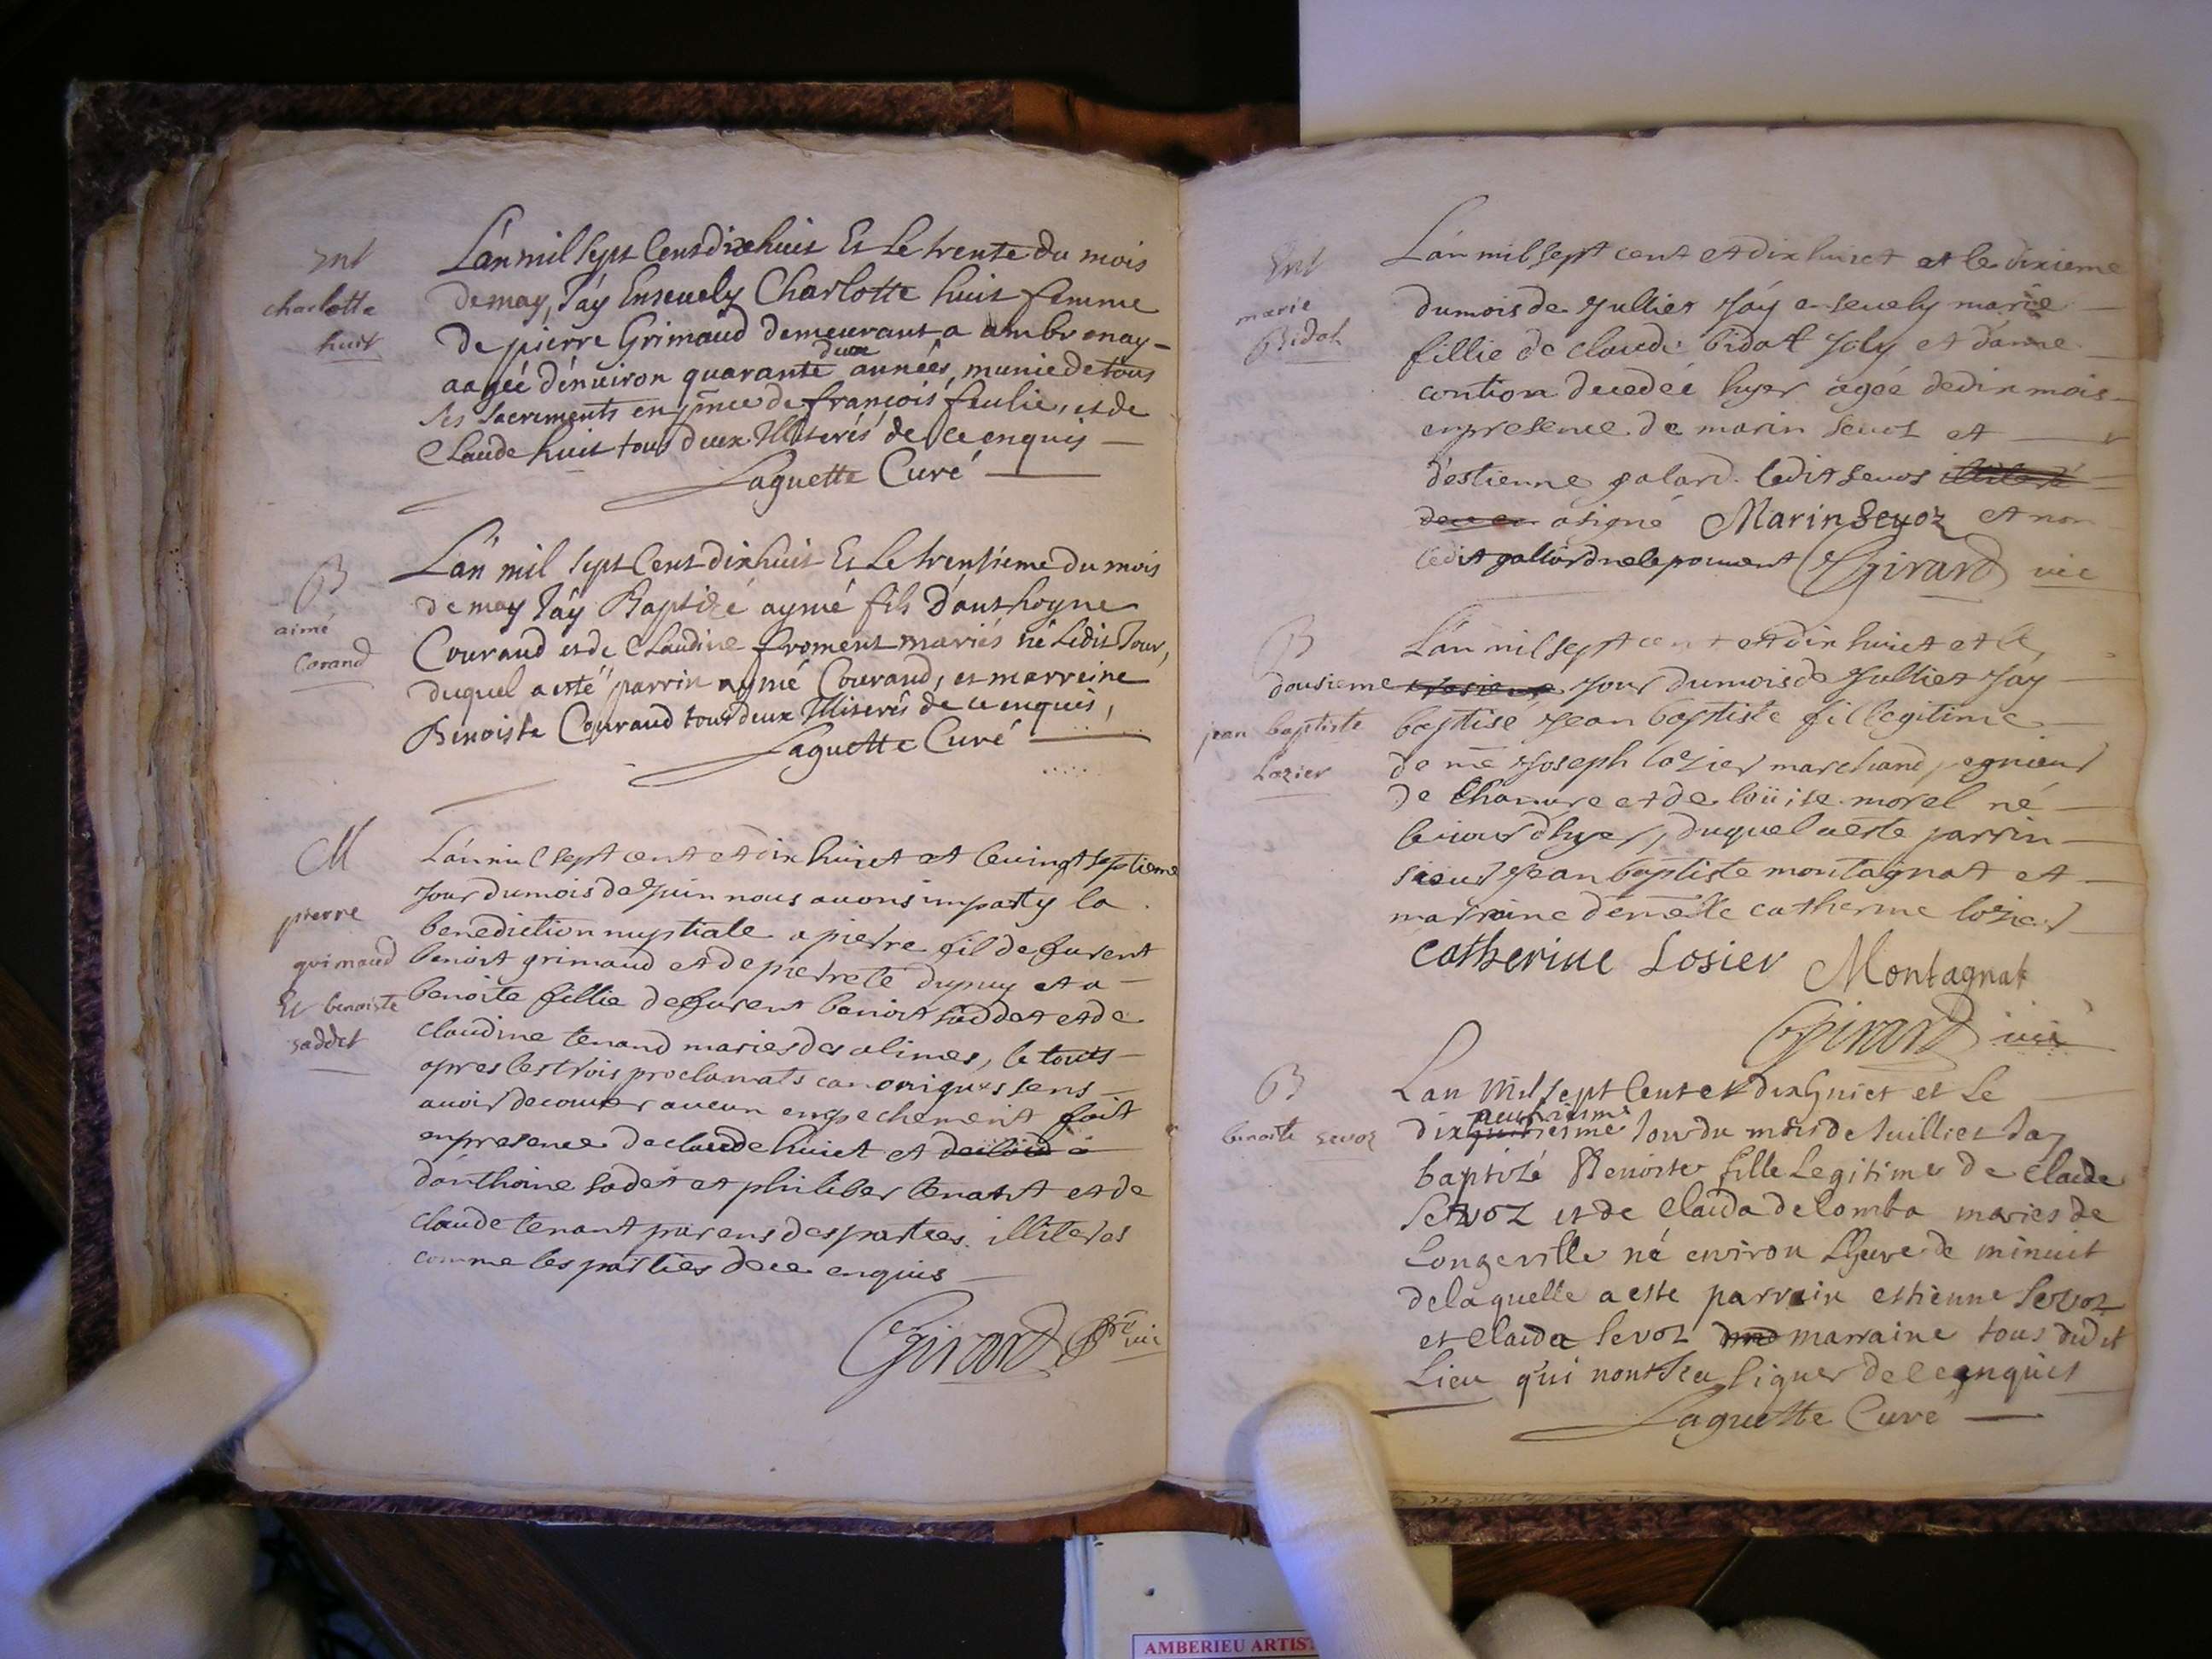 Ent
charlotte
huit
L'an mil sept Cent dixhuit Et Le trente du mois
de may, J'ay Enseuely Charlotte huit femme
de pierre Grimaud demeurant a ambronay -
deux
aagée d'enuiron quarante années, munie de tous
ses sacrements en pnce de françois feulie, et de
Claude huit tous deux Illiterés de ce enquis —
Laguette Curé
B
aimé
Corand
L'an mil sept Cent dixhuit Et Le trentieme du mois
de may J'ay Baptizé aymé fils D'anthoyne
Couraud et de Claudine froment mariés né Ledit Jour,
duquel a esté parrin aymé Couraud, et marreine
Benoiste Couraud tous deux Illiterés de ce enquis,
Laguette Curé
M
pierre
grimaud
Et benoiste
saddet
L'an mil sept cent et dix huict et le vingt septieme
Jour du mois de Juin nous auons imparty la
benediction nuptiale a pierre fil de furent
benoit grimaud et de pierrete dupuy et a -
benoite fillie de furent benoit saddet et de
claudine tenand maries des alimes, le touts -
apres les trois proclamats canoniques sens -
auoir decouuer aucun empechement fait
en presence de claude huict et
d'anthoine sadet et philiber tenant et de
claude tenant parens des parties illiteres
comme les parties de ce enquis —
Girard pbre vic
Ent
marie
Bidat
L'an mil sept cent et dix huict et le dixieme
du mois de Jullier J'ay enseuely marie —
fillie de claude bidat Joly et d'anne
contion decedée hyer agée de dix mois -
en presence de marin seuoz et —
d'estienne galard ledit seuos
a signé Marin Sevoz et non
ledit gallard ne le pouuent Girard vic
B
jean baptiste
Lozier
L'an mil sept cent et dix huict et le
dousieme Jour du mois de Jullier J'ay
baptisé Jean baptiste fil legitime —
de me Joseph lozier marchand pegnieur
de Chanure et de loüise morel né —
le iour d'hyer, duquel a este parrin —
sieur Jean baptiste montagnat et —
marraine demelle catherine lozier
Catherine Losier Montagnat
Girard vic
B
benoite sevoz
Lan Mil sept Cent et dixhuict et Le
neufviesme
dix huitiesme Jour du mois de Juillier Jay
baptizé Benoiste fille Legitime de Claude
Sevoz et de Clauda delomba maries de
Longeville né environ Lheure de minuit
de laquelle a este parrain estienne Sevoz
et Clauda Sevoz marraine tous dudit
Lieu qui nont sceu signer de ce enquis
Laguette Curé —
AMBERIEU ARTIS